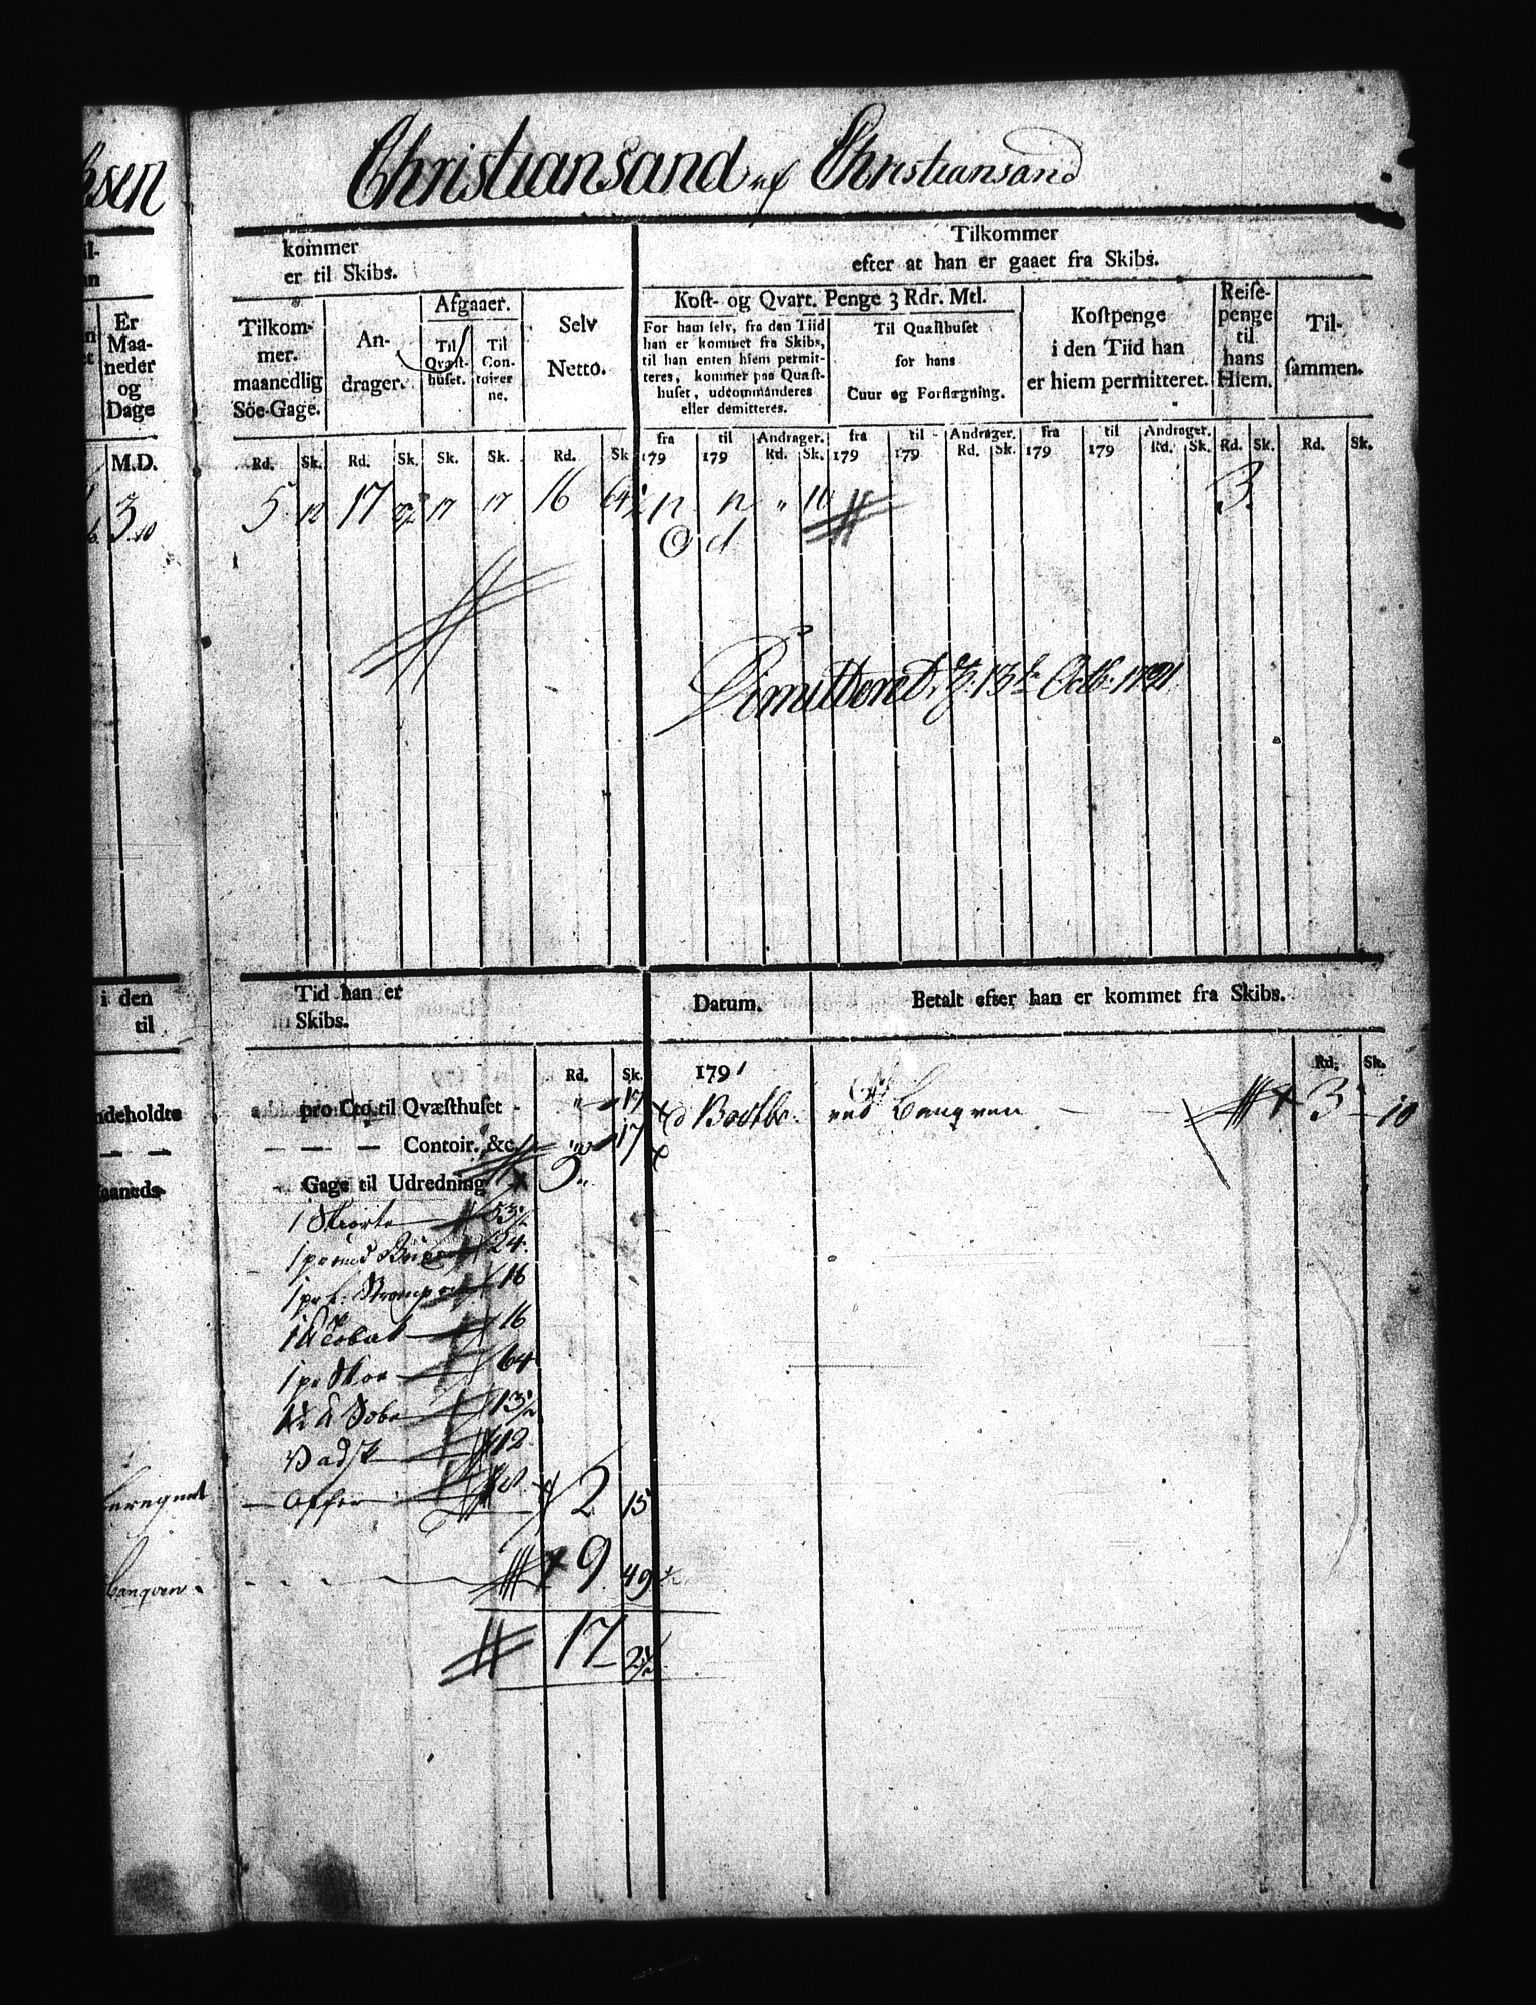 ksen
Christiansand af Christiansand
kommer
er til Skibs.
Tilkommer
efter at han er gaaet fra Skibs.
Er Maaneder og Dage
Tilkommer. maanedlig Söe-Gage.
Andrager.
Afgaaer.
Til Qvæsthuset.
Til Contoirerne.
Selv Netto.
Kost- og Qvart. Penge 3 Rdr. Mtl.
For ham selv, fra den Tiid
han er kommet fra Skibs,
til han enten hiem permit-
teres, kommer paa Quæst-
huset, udcommanderes
eller demitteres.
Til Quæsthuset
for hans
Cuur og Forflægning.
Kostpenge
i den Tiid han
er hiem permitteret.
Reise-
penge
til
hans
Hiem.
Til-
sammen.
M.D.
Rd. Sk. Rd. Sk. Sk. Sk. Rd. Sk.
fra 179 til 179 Andrager. Rd. Sk. fra 179 til 179 Andrager. Rd. Sk. fra 179 til 179 Andrager. Rd. Sk. Rd. Sk. Rd. Sk.
3 10 5 12 17 17 17 16 64½ " 10 3
Dimitteret d. 13de Octb. 1791
i den
til
Tid han er
Skibs.
Datum.
Betalt efter han er kommet fra Skibs.
Rd. Sk. 1791 Rd. Sk.
indeholdte pro Cto. til Qvæsthuset - " 17
ved Banqven 3 10
— — — Contoir. &c. " 17
Maaneds- Gage til Udredning 3 "
1 Skiorte 53½
1 pr 24
1 pr. Strømper 16
1 16
1 pr Skoe 64
Sæbe 13½
Vadsk 12
beregnet Offer 2 15
Banqven 9 49½
17 2½